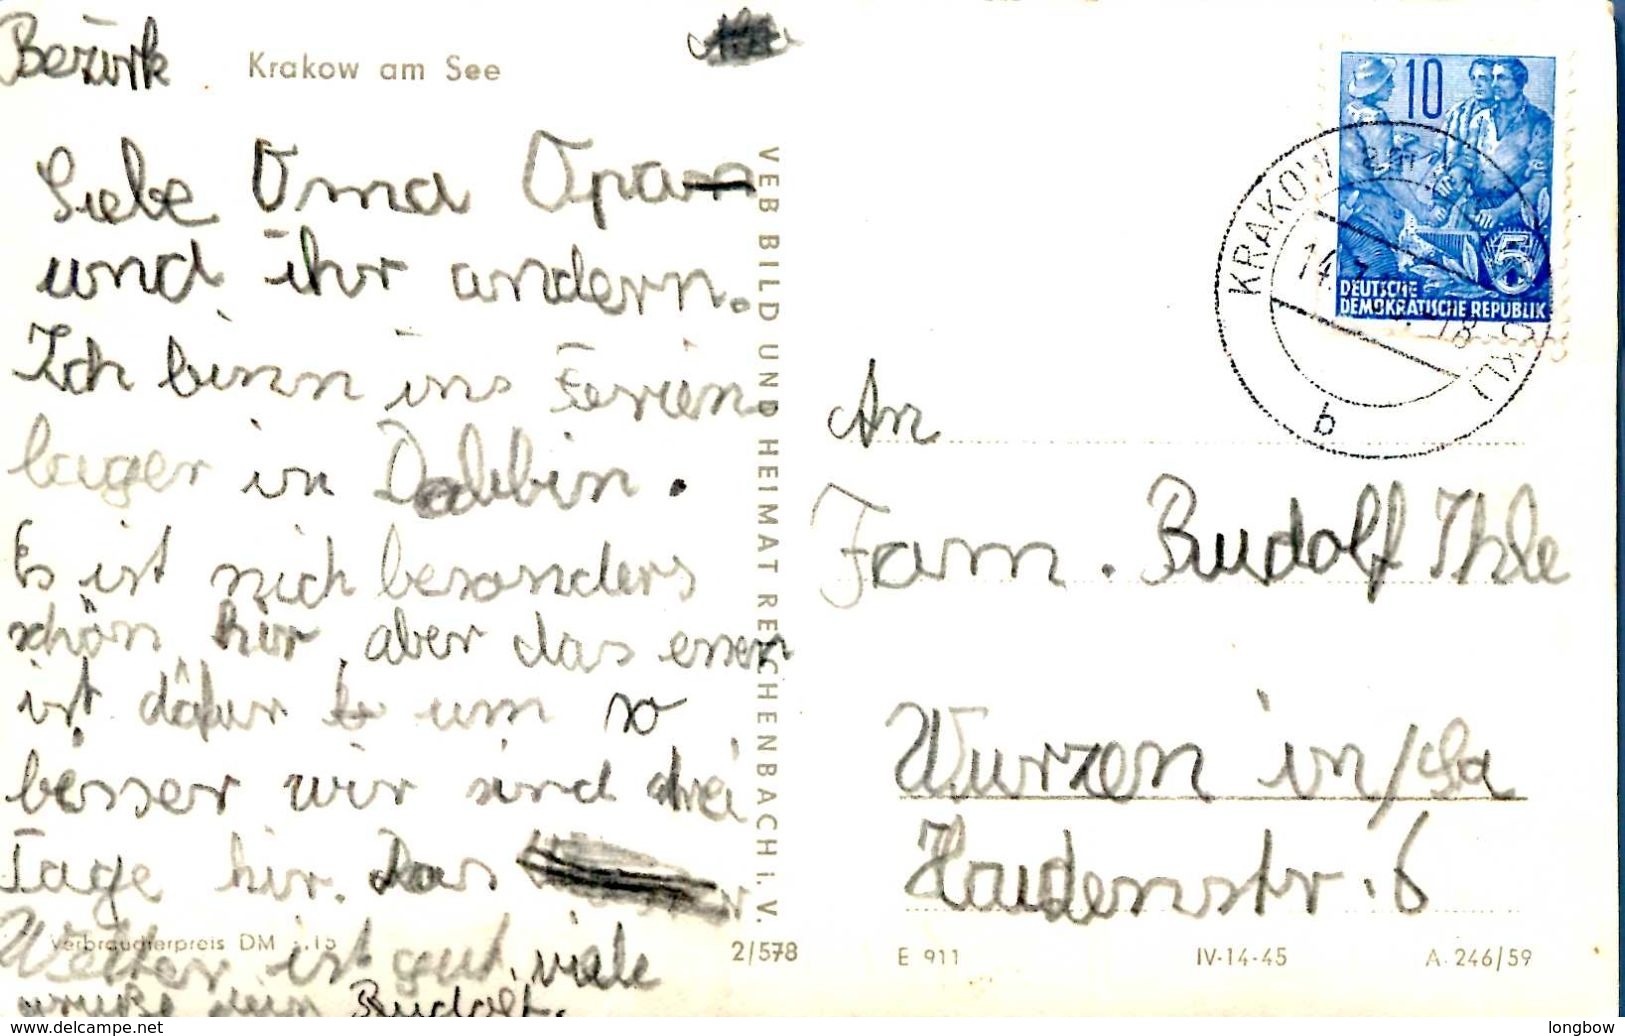 Bezirk
Krakow am See
Liebe Oma Opa
und ihr andern.
Ich binn ins Ferien
lager in Dobbin.
Es ist nich besonders
schön hir, aber das essen
ist dafür um so
besser wir sind drei
Tage hir. Das
Wetter ist gut. viele
grüße dein Rudolf.
Verbraucherpreis DM -.15
VEB BILD UND HEIMAT REICHENBACH i. V.
2/578
10
5
DEUTSCHE
DEMOKRATISCHE REPUBLIK
KRAKOW am
14.7.
-18
b
An
Fam. Rudolf Ihle
Wurzen in/Sa
Haidenstr. 6
E 911
IV-14-45
A. 246/59
www.delcampe.net
longbow